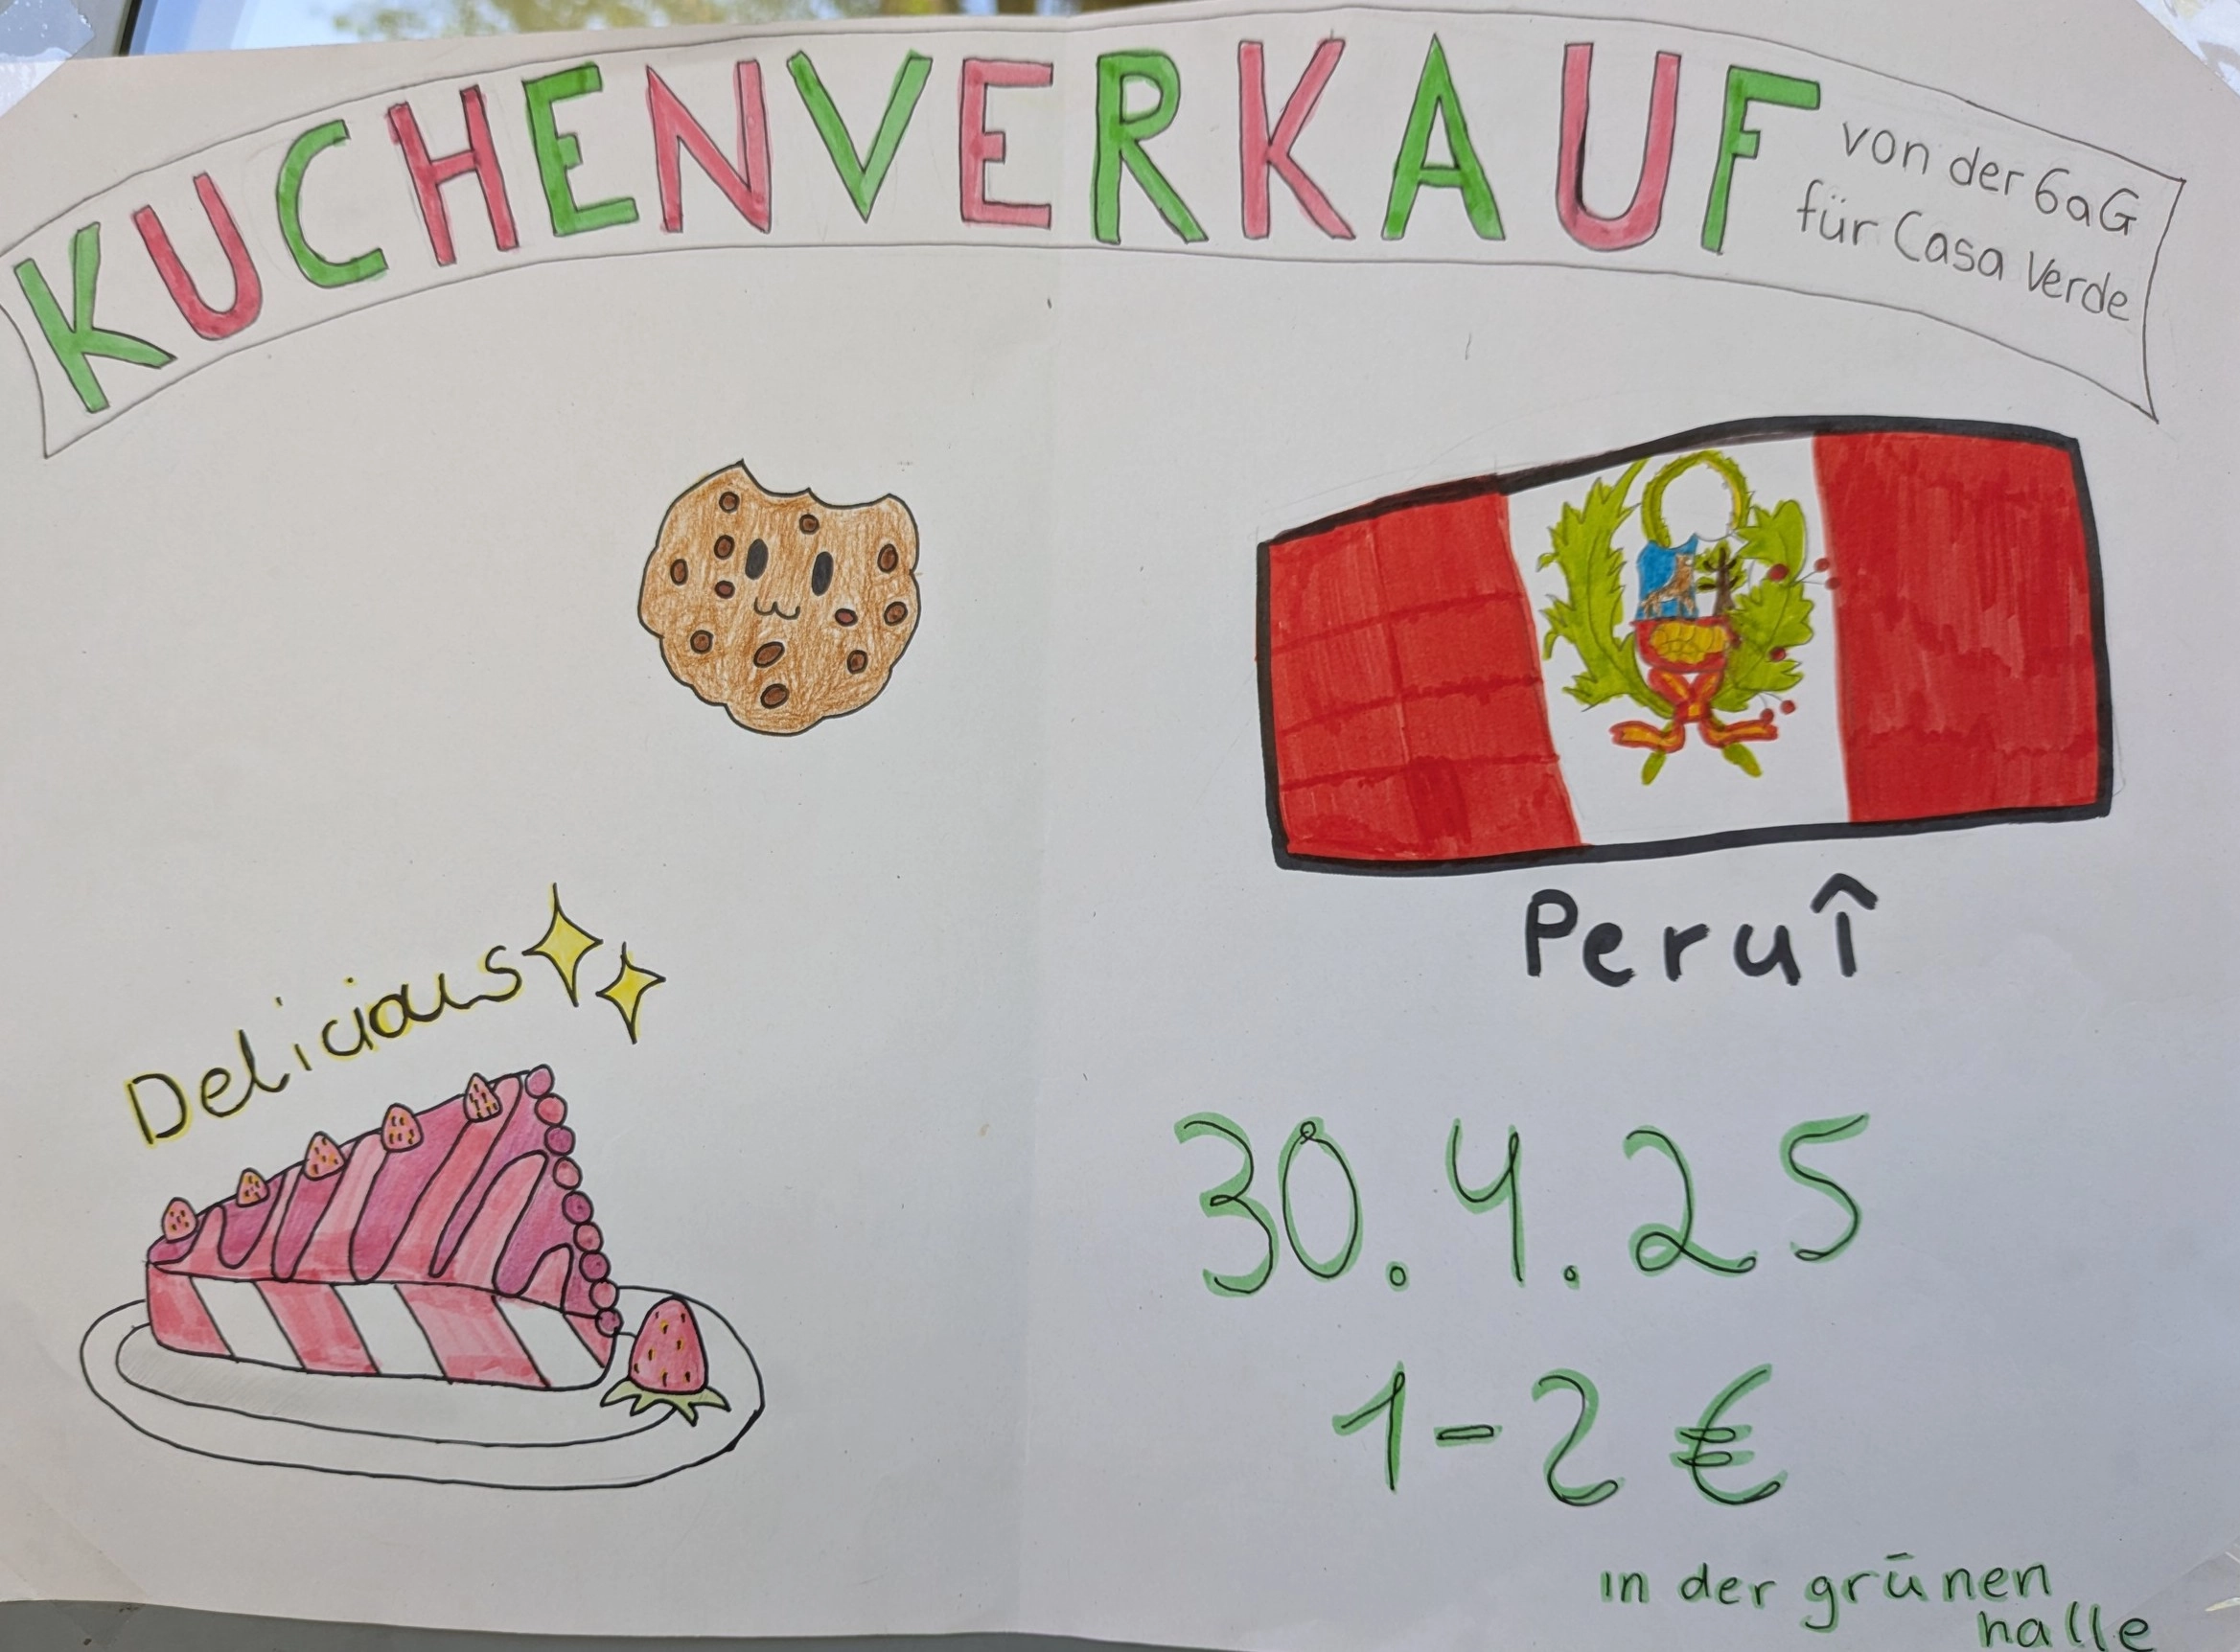 KUCHENVERKAUF
von der 6aG
für Casa Verde
Peru↑
Delicious
30.4.25
1-2 €
in der grünen
halle